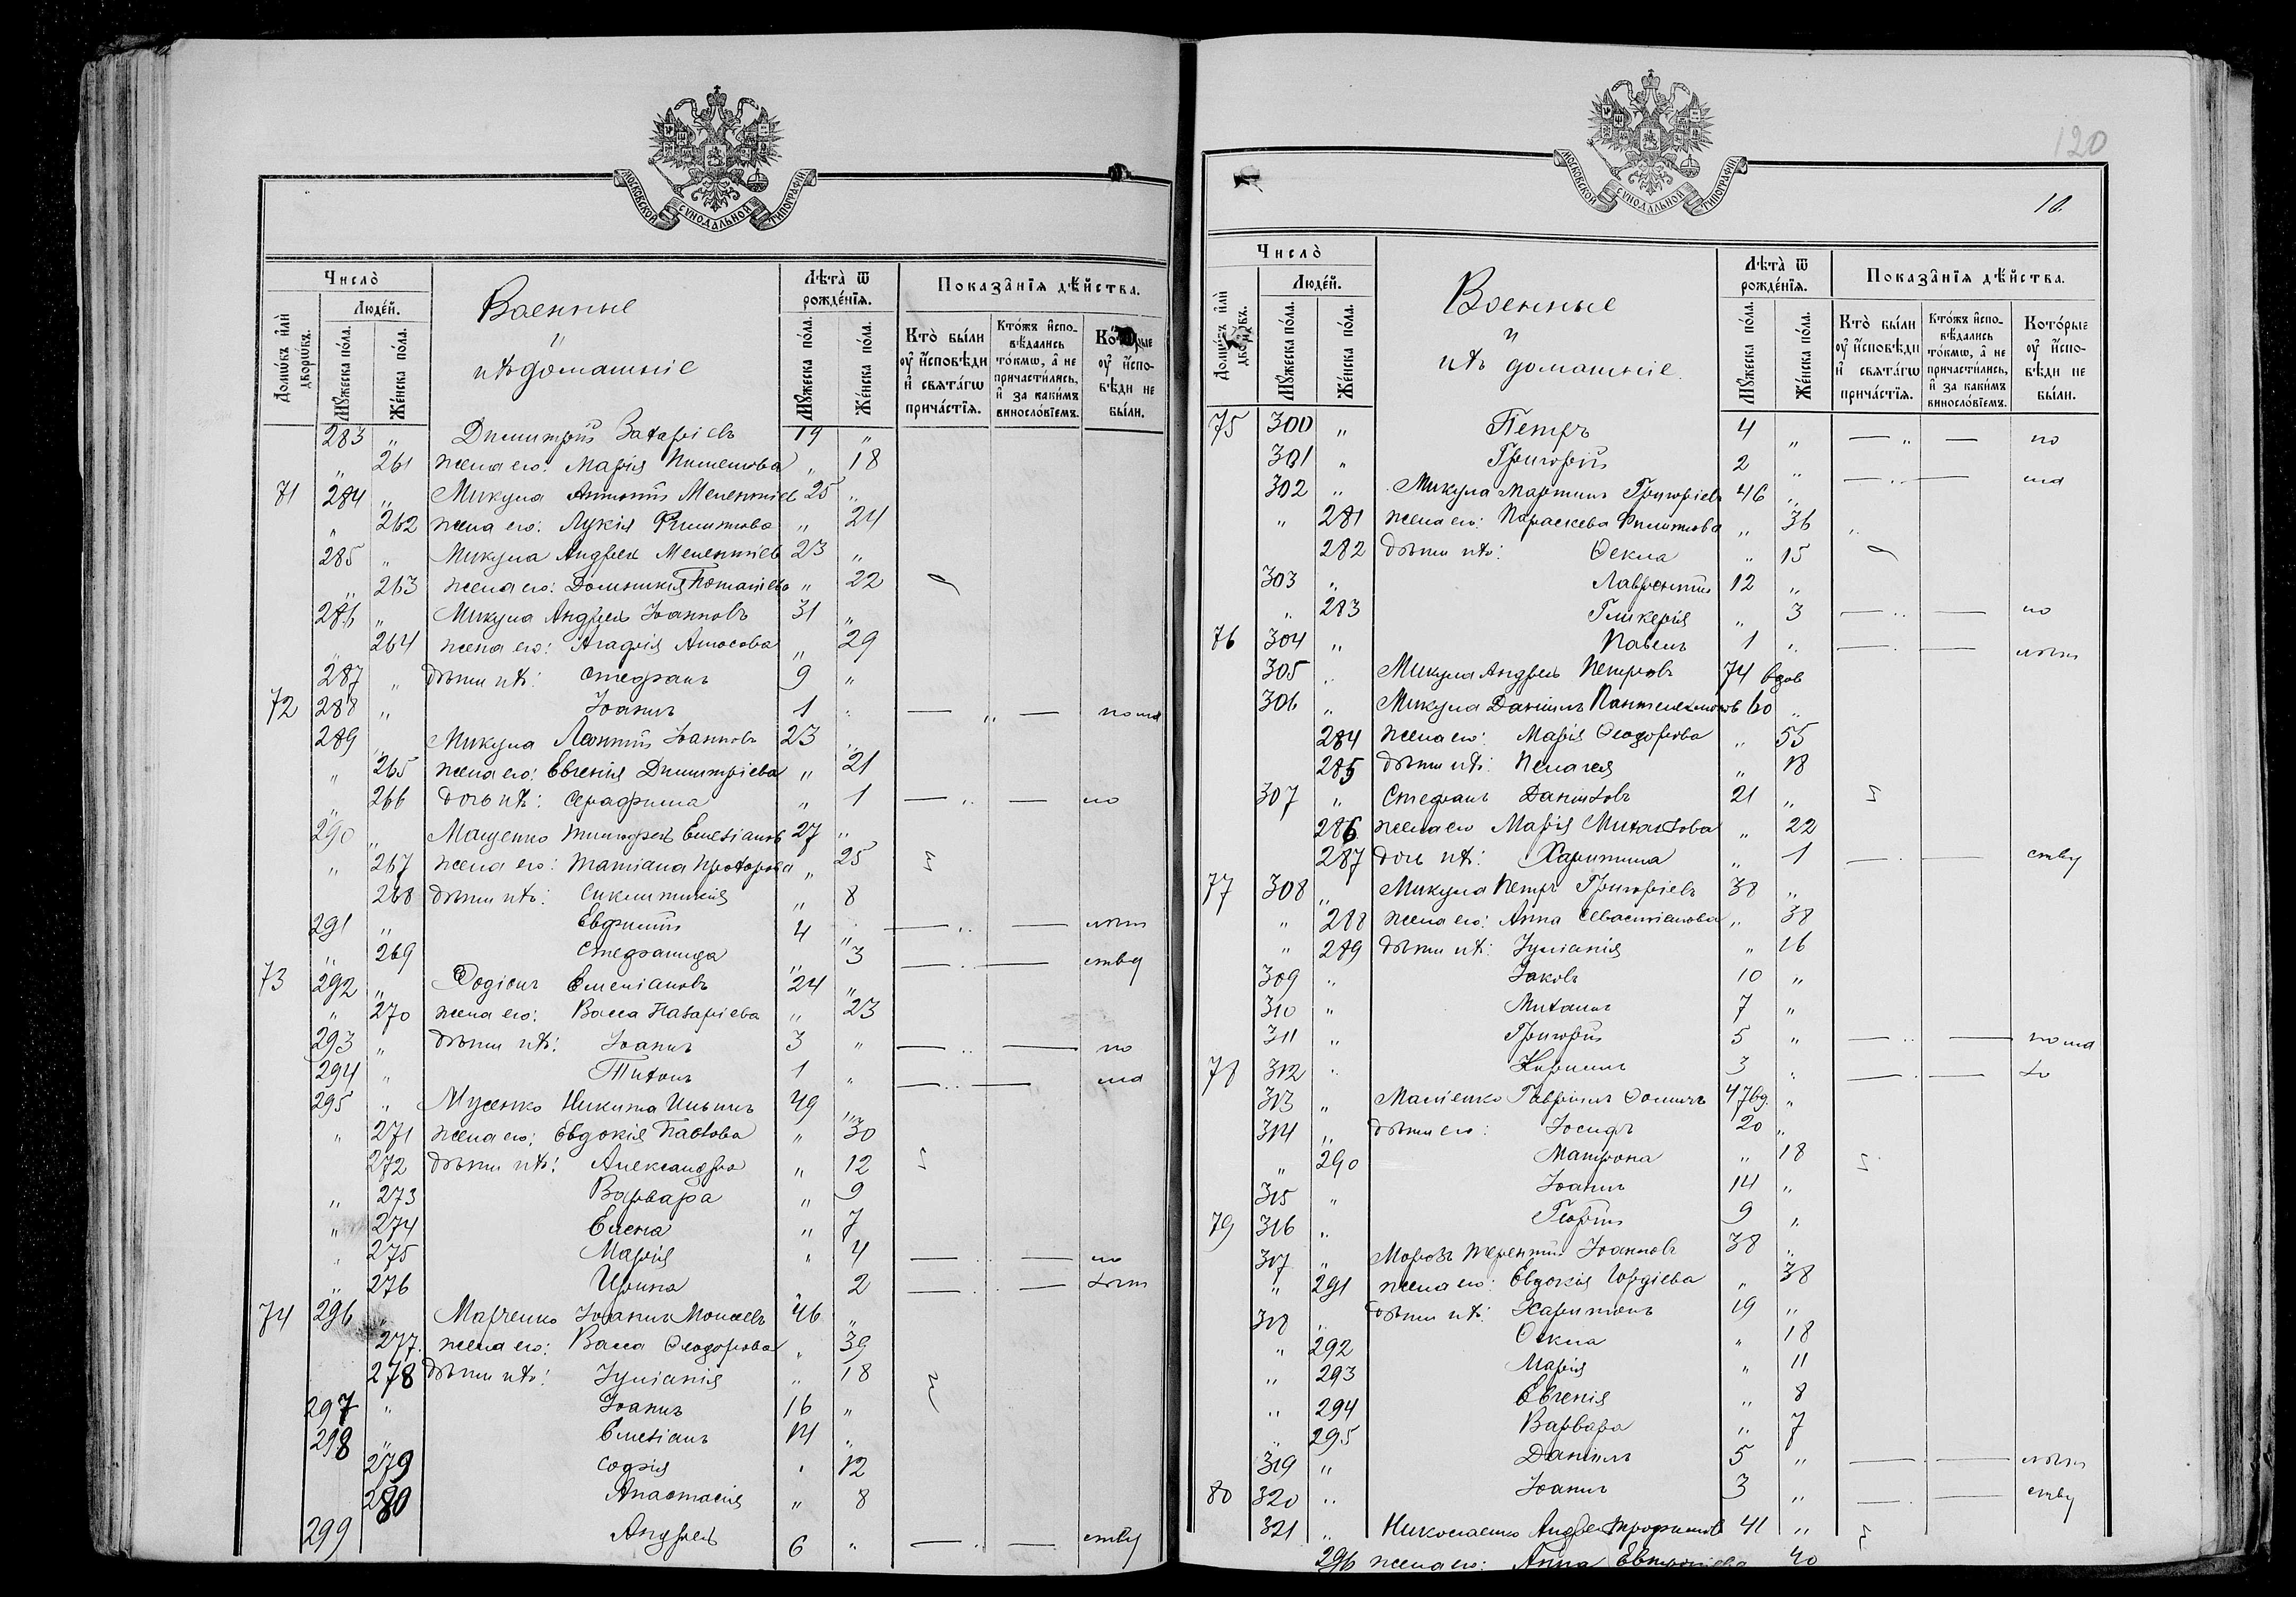 МОСКОВСКОЙ СѴНОДАЛЬНОЙ ТИПОГРАФІИ
Число̀
Людéй.
Домѡ́въ и҆лѝ дворѡ́въ.
Мꙋ́жеска по́ла.
Же́нска по́ла.
Военные
и
ихъ домашніе
Лѣта̀ ѿ рожде́нїѧ.
Мꙋ́жеска по́ла.
Же́нска по́ла.
Показа̂нїѧ дѣ́йства.
Кто̀ бы́ли оу҆ и҆сповѣди и҆ свѧта́гѡ прича́стїѧ.
Кто́жъ и҆спо-вѣдались то́кмѡ, а҆ не причасти́лись, и҆ за каки́мъ винословїемъ.
Кото́рые оу҆ и҆спо-вѣди не бы́ли.
283 „ Димитрій Захаріевъ 19 „
„ 261 жена его: Марія „ 18
71 284 „ Микула Антоній Мелентіев 25 „
„ 262 жена его: Лукія Филиппова „ 24
285 „ Микула Андрей Мелентіев 23 „
„ 263 жена его: Домникія Потапіева „ 22
286 „ Микула Андрей Іоанновъ 31 „
„ 264 жена его: Агафія Амосова „ 29
287 „ дѣти ихъ: Стефанъ 9 „
72 288 „ Іоаннъ 1 „ — „ — по мл
289 „ Микула Леонтій Іоанновъ 23 „
„ 265 жена его: Евгенія Димитріева „ 21
„ 266 дочь ихъ: Серафима „ 1 — „ — по
290 „ Мащенко Тимофей Емеліановъ 27 „
„ 267 жена его: Татіана Прохорова „ 25
268 дѣти ихъ: Синклитикія „ 8
291 „ Евфимій 4 „ — „ — лѣт
„ 269 Стефанида „ 3 — „ — ству
73 292 „ Родіонъ Емеліановъ 24 „
„ 270 жена его: Васса Назаріева „ 23
293 „ дѣти ихъ: Іоаннъ 3 „ — „ — по
294 „ Тихонъ 1 „ — „ — мл
295 „ Мусенко Никита Ильинъ 49 „
„ 271 жена его: Евдокія Павлова „ 30
272 дѣти ихъ: Александра „ 12
„ 273 Варвара „ 9
„ 274 Елена „ 7
„ 275 Марія „ 4 — „ — по
„ 276 Ирина 2 — „ —
74 296 „ Марченко Іоаннъ Моисеевъ 46 „
277. жена его: Васса Ѳеодорова „ 39
278 дѣти ихъ: Іуліанія „ 18
297 „ Іоаннъ 16 „
298 „ Емеліанъ 14 „
279 Софія „ 12
280 Анастасія „ 8
299 Андрей 6 „ — „ — ству
120
МОСКОВСКОЙ СѴНОДАЛЬНОЙ ТИПОГРАФІИ
10.
Число̀
Людéй.
Домѡ́въ и҆лѝ дворѡ́въ.
Мꙋ́жеска по́ла.
Же́нска по́ла.
Военные
и
ихъ домашніе.
Лѣта̀ ѿ рожде́нїѧ.
Мꙋ́жеска по́ла.
Же́нска по́ла.
Показа̂нїѧ дѣ́йства.
Кто̀ бы́ли оу҆ и҆сповѣди и҆ свѧта́гѡ прича́стїѧ.
Кто́жъ и҆спо-вѣдались то́кмѡ, а҆ не причасти́лись, и҆ за каки́мъ винословїемъ.
Кото́рые оу҆ и҆спо-вѣди не бы́ли.
75 300 „ Петръ 4 „ — „ — по
301 „ Григорій 2 „ — „ — мл
302 „ Микула Мартинъ Григоріевъ 46 „
„ 281 жена его: Параскева Филиппова „ 36
282 дѣти ихъ: Ѳекла „ 15
303 „ Лаврентій 12 „
„ 283 Гликерія „ 3 — „ — по
76 304 „ Павелъ 1 „ — „ —
305 „ Микула Андрей Петровъ 74 вдов
306 „ Микула Даніилъ Пантелеимонов 60 „
284 жена его: Марія Ѳеодорова „ 55
285 дѣти ихъ: Пелагея „ 18
307 „ Стефанъ Даніиловъ 21 „
286 жена его Марія Михаилова „ 22
287 дочь ихъ: Харитина „ 1 — „ — ству
77 308 „ Микула Петръ Григоріевъ 38 „
„ 288 жена его: Анна Севастіанова „ 38
„ 289 дѣти ихъ: Іуліанія „ 16
309 „ Іаковъ 10 „
310 „ Михаилъ 7 „
311 „ Григорій 5 „ — „ — по мл
78 312 „ Кириллъ 3 „ — „ —
313 „ Гавріилъ Ѳоминъ 47 вд. „
314 „ дѣти его: Іосифъ 20 „
„ 290 Матрона „ 18
315 „ Іоаннъ 14 „
79 316 „ Георгій 9 „
317 „ Морозъ Терентій Іоанновъ 38 „
„ 291 жена его: Евдокія Гордіева „ 38
318 „ дѣти ихъ: Харитонъ 19 „
„ 292 Ѳекла „ 18
„ 293 Марія „ 11
„ 294 Евгенія „ 8
„ 295 Варвара „ 7
319 „ Даніилъ 5 „ — „ —
80 320 „ Іоаннъ 3 „ — „ — ству
321 „ Николаенко Андрей Трофимов 41 „
296 жена его: Анна 40